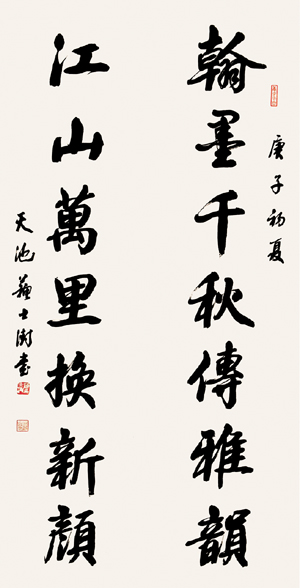 翰墨千秋傳雅韻
庚子初夏
江山萬里換新顔
天池蘇士澍書